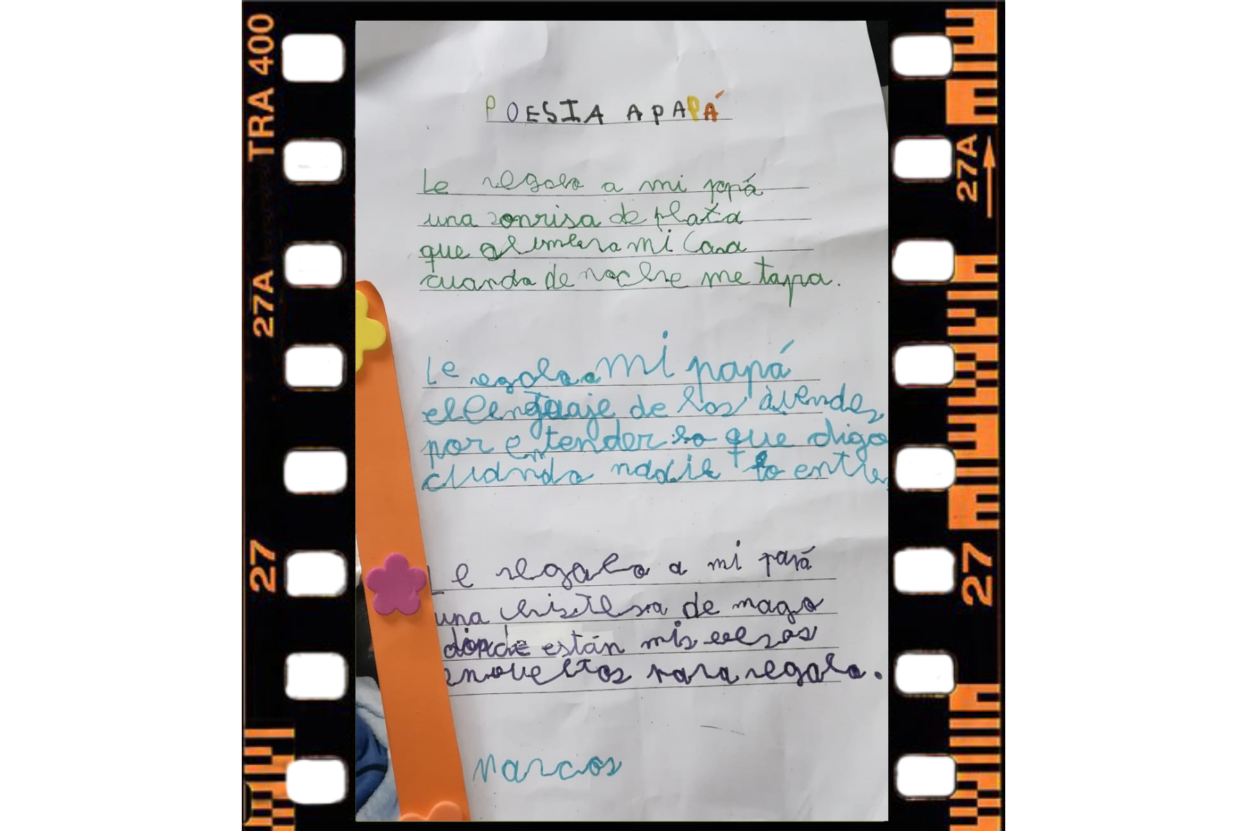 TRA 400
27A
27
27A
27
POESIA A PAPÁ
Le regalo a mi papá
una sonrisa de plata
que alumbra mi casa
cuando de noche me tapa.
Le regalo a mi papá
el lenguaje de los duendes
por entender lo que digo
cuando nadie lo entie
Le regalo a mi papá
una chistera de mago
donde están mis versos
envueltos para regalo.
Marcos